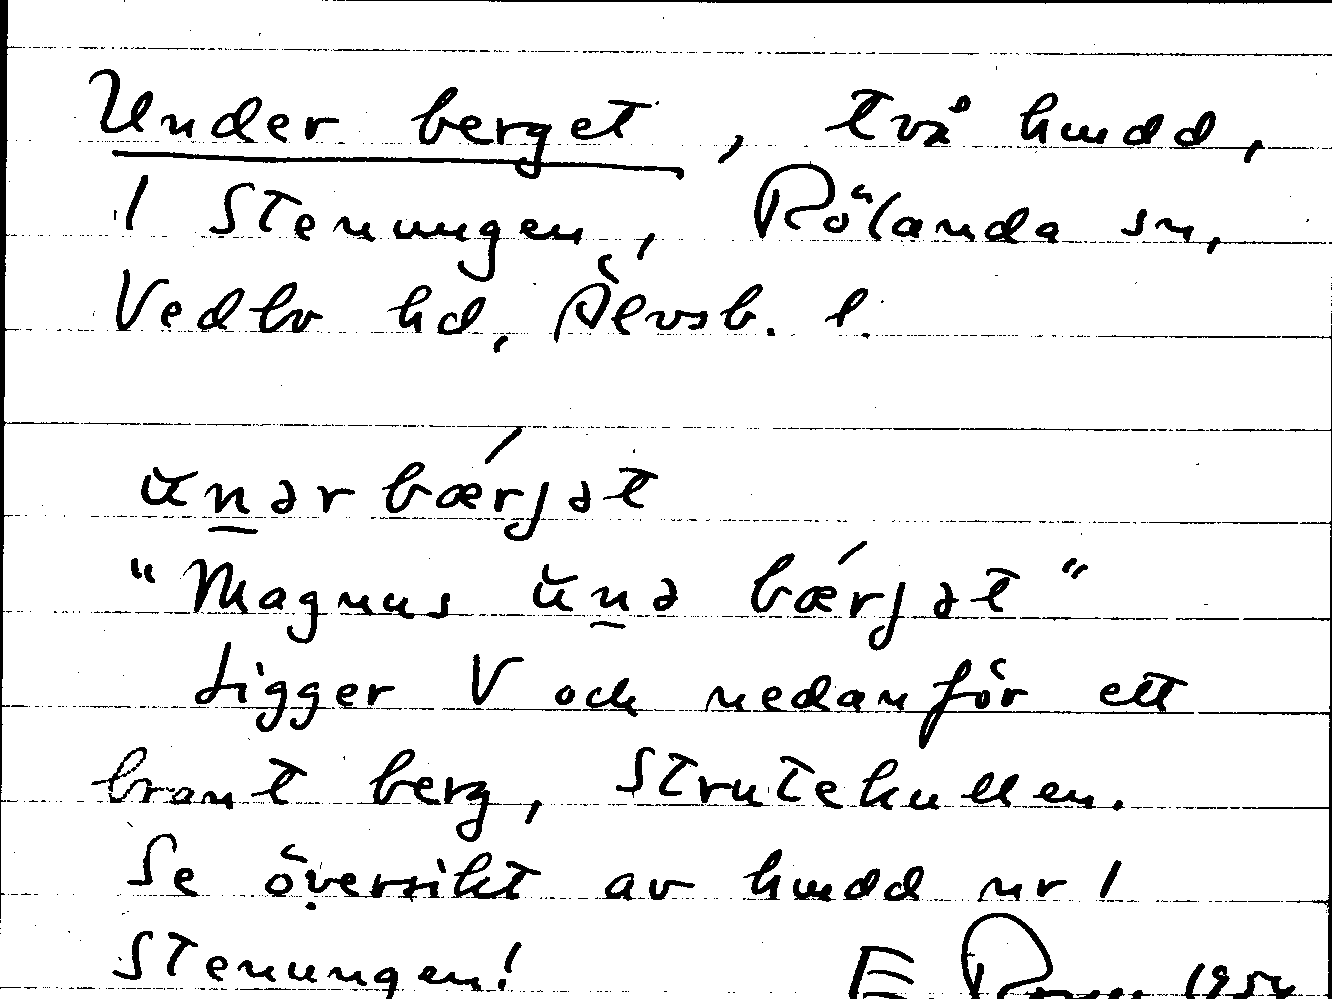 Under berget, två hmdd,
1 Stenungen, Rölanda sn,
Vedbo hd, Älvsb. l.
ŭnər bǽrjət
"Magnus ŭnə bǽrjət"
Ligger V och nedanför ett
brant berg, Strutekullen.
Se översikt av hmdd nr 1
Stenungen! E.